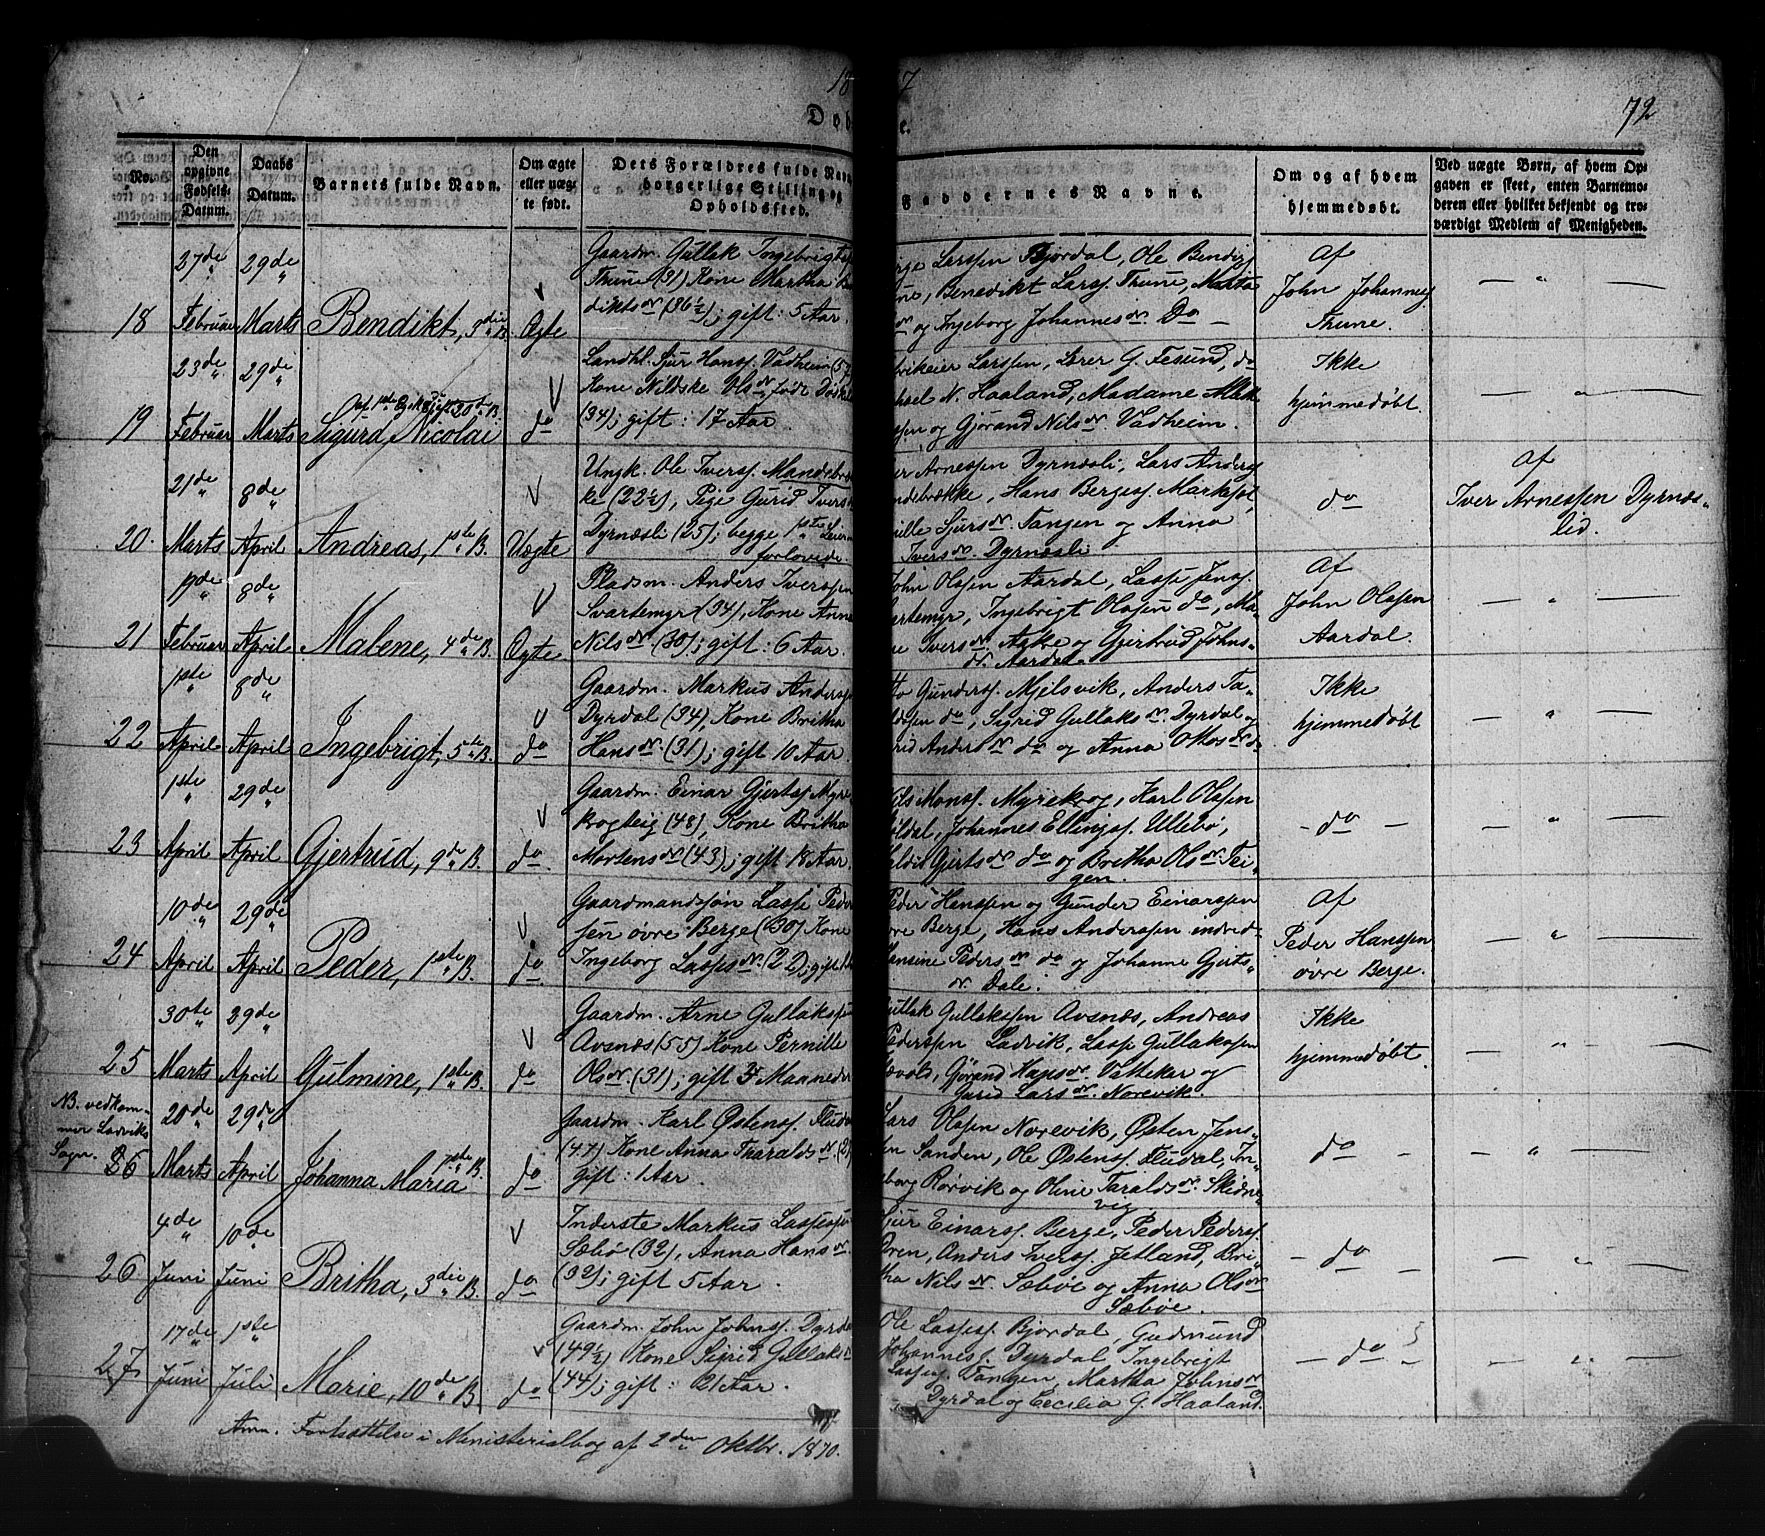 18 7
72
Døb e.
No.
Den opgivne Fødsels-Datum.
Daabs Datum.
Barnets fulde Navn.
Om ægte eller uægte født.
Dets Forældres fulde Navn borgerlige Stilling og Opholdssted.
Faddernes Navne.
Om og af hvem hjemmedøbt.
Ved uægte Børn, af hvem Opgaven er skeet, enten Barnemoderen eller hvilket bekjendt og troværdigt Medlem af Menigheden.
18 27de Februar 29de Marts Bendikt, 3die B. Ægte
Gaardm. Gullak Ingebrigts
Thune (31) Kone Martha Be
dikts dr (36½); gift: 5 Aar.
Larssen Bjordal, Ole Bendixs
Benedikt Larss. Thune, Marta
og Ingeborg Johannes dr. Do —
Af
John Johannes
Thune.
— " —
19 23de Februar 29de Marts Sigurd Nicolai do
Landhl. Sjur Hanss. Vadheim
Kone Nildske Ols dr. født
(34); gift: 17 Aar.
Larssen, Lærer G. Fesund, do
N. Haaland, Madame
og Gjørand Nils dr. Vadheim.
Ikke
hjemmedøbt
— " —
20. 21de Marts 8de April Andreas, 1ste B. Uægte
Ungk. Ole Iverss. Mandsbræ
ke (22½), Pige Gurid Ivers
Dyrnæsli (25); begge 1ste Leierm
forlovede
Arnessen Dyrnæsli, Lars Anders
Hans Berges. Markesøt,
Sjurs dr. Tangen og Anna
Ivers dr. Dyrnæsli
do
Af
Iver Arnessen Dyrnæs-
lid.
21 19de Februar 8de April Malene, 4de B. Ægte
Pladsm. Anders Iverssen
Svartemyr (34), Kone Anne
Nils dr (30); gift: 6 Aar.
John Olssen Aardal, Lasse Jenss.
Ingebrigt Olssen do, Ma-
Ivers dr. Aske og Gjertrud Johns-
dr. Aardal.
Af
John Olssen
Aardal.
— " —
22 1ste April 8de April Ingebrigt, 5te B. do
Gaardm. Markus Anderss
Dyrdal (34), Kone Britha
Hans dr (31); gift 10 Aar.
Gunderss. Mjelsvik, Anders Ta-
do, Sigrid Gullaks dr Dyrdal og
Anders dr do og Anna Ottos dr do
Ikke
hjemmedøbt
— " —
23 1ste April 29de April Gjertrud, 9de B. do.
Gaardm. Einar Gjertss. Myre
krogteig (48), Kone Britha
Mortens dr (43); gift 18 Aar.
Nils Monss. Myrekrog, Karl Olssen
Johannes Ellingss. Ullebø,
Gjerts dr do og Britha Ols dr. Tei-
gen.
– do –
— " —
24 10de April 29de April Peder, 1ste B. do.
Gaardmandsøn Lasse Peder
sen øvre Berge (30) Kone
Ingeborg Lasses dr. (22); gift
Peder Hanssen og Gunder Einarssen
Berge, Hans Anderssen indred
Peders dr do og Johanne Gjerts-
dr. Dale.
Af
Peder Hanssen
øvre Berge.
— " —
25 30te Marts 29de April Gulmine, 1ste B. do
Gaardm. Arne Gullakss
Avsnæs (55) Kone Pernille
Ols dr. (31); gift 3 Maaneder
Gullak Gullakssen Avsnæs, Andreas
Pederssen Ladvik, Lasse Gullakssen
Gjørand Hans dr. Vatteker og
Gurid Lars dr. Norevik.
Ikke
hjemmedøbt.
— " —
NB. vedkom-
mer Ladviks
Sogn.
26 20de Marts 29de April Johanna Maria 1ste B. do
Gaardm. Karl Østenss. Fludal
(47) Kone Anna Tharalds dr.
gift: 1 Aar.
Lars Olssen Norevik, Østen Jens-
Sanden, Ole Østenss. Fludal, In-
Rørvik og Oline Taralds dr. Skidne-
vig.
do
— " —
26 4de Juni 10de Juni Britha, 3die B. do
Inderste Markus Lasses
Sæbø (32), Anna Hans dr.
(32); gift 5 Aar.
Sjur Einarss. Berge, Peder Pederss.
Øren, Anders Iverss. Jetland, Bri-
tha Nils dr. Sæbøe og Anna Ols dr
Sæbøe.
– do
— " —
27 17de Juni 1ste Juli Marie, 10de B. do
Gaardm. John Johnss. Dyrda
(49½) Kone Sigrid Gullaks
(44); gift: 21 Aar.
Ole Lasses. Bjordal, Gudmund
Johannes. Dyrdal, Ingebrigt
Lasses. Tangen, Martha Johns dr
Dyrdal og Cecilia G. Haaland.
– do –
— " —
Anm. Fortsættelse i Ministerialbog af 2den Oktbr. 1870.